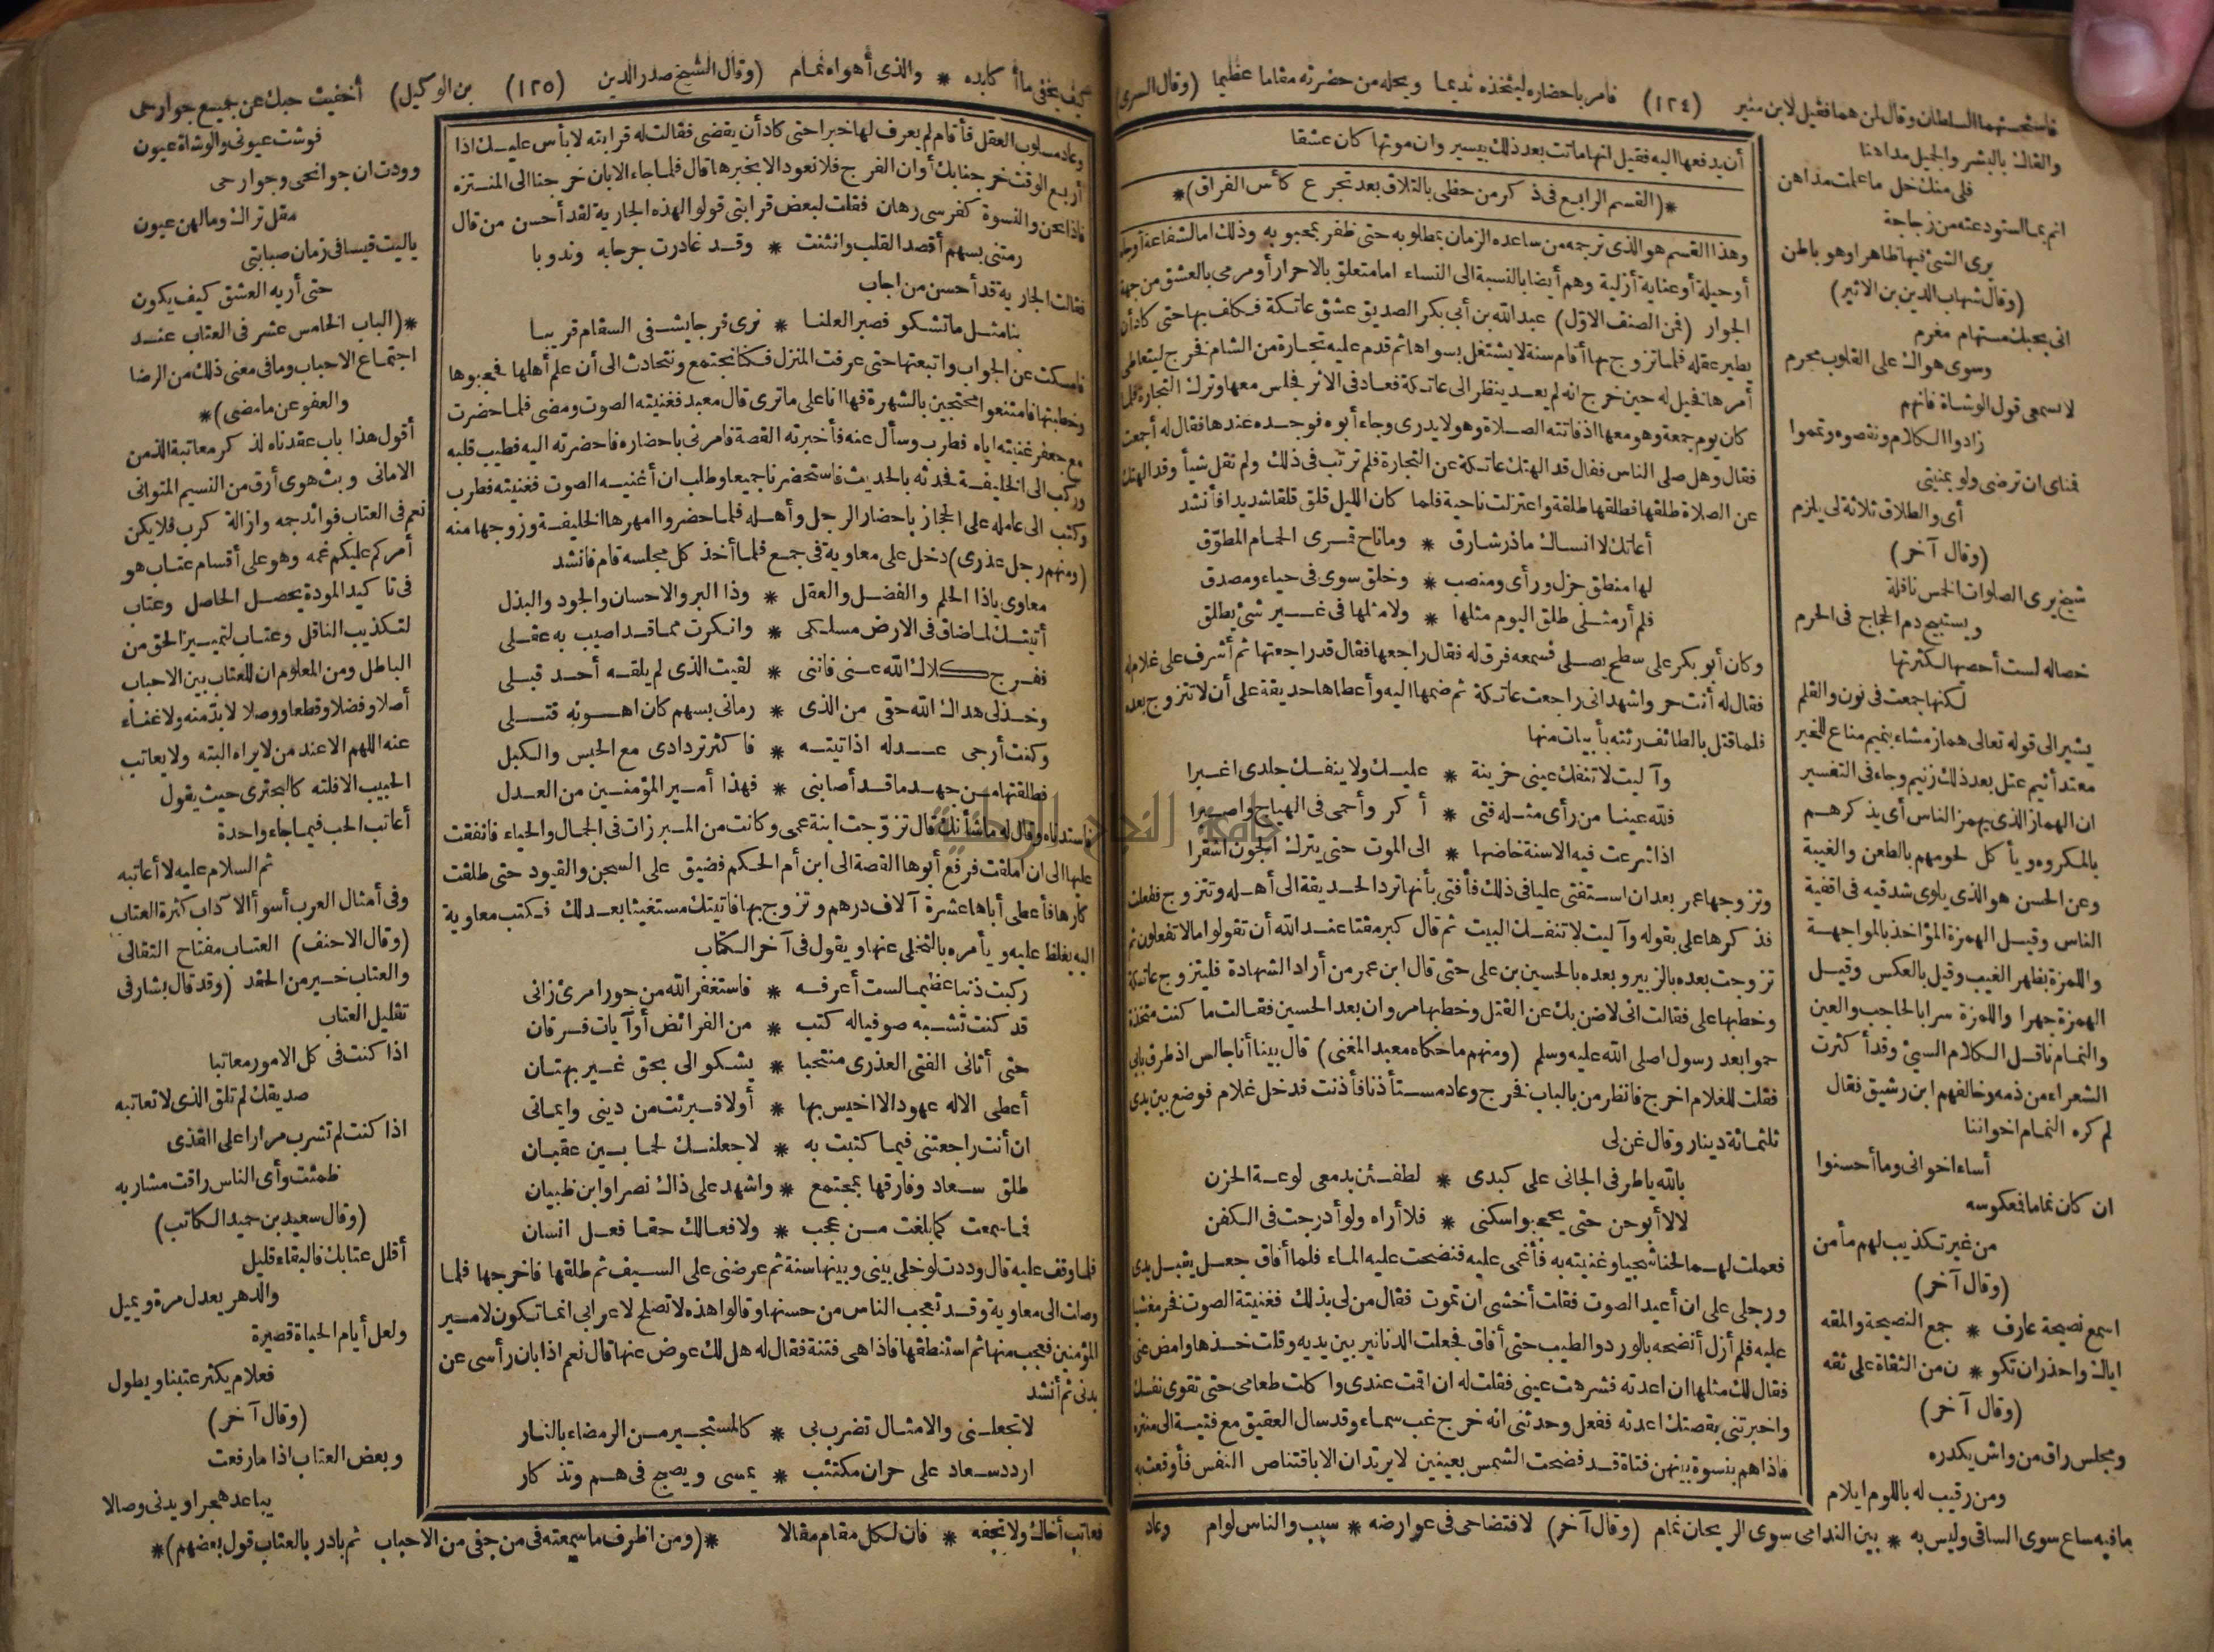 فاستحسنهما السلطان وقال لمن هما فقيل لابن منير (١٢٤) فامر باحضاره ليتخذه نديما ويحله من حضرته مقاما عظيما (وقال السرى)
والقاك بالبشر والجميل مداهنا
فلى منك خل ما علمت مداهن
انم بما استودعته من زجاجة
يرى الشئ فيها ظاهرا وهو باطن
(وقال شهاب الدين بن الاثير)
انى بحبك مستهام مغرم
وسوى هواك على القلوب محرم
لا تسمعى قول الوشاة فانهم
زادوا الكلام ونقصوه وتمموا
فناى ان ترضى ولو بمنيتى
أى والطلاق ثلاثة لى يلزم
(وقال آخر)
شيخ يرى الصلوات الخمس نافلة
ويستبيح دم الحجاج فى الحرم
خصاله لست أحصيها لكثرتها
لكنها جمعت فى نون والقلم
يشير الى قوله تعالى هماز مشاء بنميم مناع للخير
معتد أثيم عتل بعد ذلك زنيم وجاء فى التفسير
ان الهماز الذى يهمز الناس أى يذكرهم
بالمكروه ويأكل لحومهم بالطعن والغيبة
وعن الحسن هو الذى يلوى شدقيه فى اقفية
الناس وقيل الهمزة المؤاخذ بالمواجهة
واللمزة بظهر الغيب وقيل بالعكس وقيل
الهمزة جهرا واللمزة سرا بالحاجب والعين
والنمام ناقل الكلام السئ وقد أكثرت
الشعراء من ذمه وخالفهم ابن رشيق فقال
لم كره النمام اخواننا
أساء اخوانى وما أحسنوا
ان كان نماما فعكوسه
من غير تكذيب لهم مأمن
(وقال آخر)
اسمع نصيحة عارف * جمع النصيحة والمقه
اياك واحذر ان تكو * ن من الثقاة على ثقه
(وقال آخر)
ومجلس راق من واش يكدره
ومن رقيب له باللوم ايلام
ما فيه ساع سوى الساقى وليس به * بين الندامى سوى الريحان نمام (وقال آخر) لافتضاحى فى عوارضه * سبب والناس لوام
أن يدفعها اليه فقيل انها ماتت بعد ذلك بيسير وان موتها كان عشقا
*(القسم الرابع فى ذكر من حظى بالتلاق بعد تجرع كأس الفراق)*
وهذا القسم هو الذى ترجمه من ساعده الزمان بمطلوبه حتى ظفر بمحبوبه وذلك اما لشفاعة أو جاه
أو حيلة أو عناية أزلية وهم أيضا بالنسبة الى النساء اما متعلق بالاحرار أو مرمى بالعشق من جهة
الجوار (فمن الصنف الاوّل) عبد الله بن أبى بكر الصديق عشق عاتكة فكلف بها حتى كاد أن
يطير عقله فلما تزوج بها أقام سنة لا يشتغل بسواها ثم قدم عليه تجارة من الشام فخرج ليتعاطى
أمرها فقيل له حين خرج انه لم يعد ينظر الى عاتكة فعاد فى الاثر فجلس معها وترك التجارة فلما
كان يوم جمعة وهو معها اذ فاتته الصلاة وهو لا يدرى وجاء أبوه فوجده عندها فقال له أجمعت
فقال وهل صلى الناس فقال قد الهتك عاتكة عن التجارة فلم ترتب فى ذلك ولم تقل شيأ وقد الهتك
عن الصلاة طلقها فطلقها طلقة واعتزلت ناحية فلما كان الليل قلق قلقا شديدا فأنشد
أعاتك لا انساك ما ذر شارق * وما ناح قمرى الحمام المطوّق
لها منطق جزل ورأى ومنصب * وخلق سوى فى حياء ومصدق
فلم أر مثلى طلق اليوم مثلها * ولا مثلها فى غير شئ يطلق
وكان أبو بكر على سطح يصلى فسمعه فرق له فقال راجعها فقال قد راجعتها ثم أشرف على غلام له
فقال له أنت حر واشهد انى راجعت عاتكة ثم ضمها اليه وأعطاها حديقة على أن لا تتزوج بعده
فلما قتل بالطائف رثته بأبيات منها
وآليت لا تنفك عينى حزينة * عليك ولا ينفك جلدى اغبرا
فلله عينا من رأى مثله فتى * أكر وأحمى فى الهياج واصبرا
اذا شرعت فيه الاسنة خاضها * الى الموت حتى يترك الجون اشقرا
وتزوجها عمر بعد ان استفتى عليا فى ذلك فأفتى بأنها ترد الحديقة الى أهله وتتزوج ففعلت
فذكرها على بقوله وآليت لا تنفك البيت ثم قال كبر مقتا عند الله أن تقولوا ما لا تفعلون ثم
تزوجت بعده بالزبير وبعده بالحسين بن على حتى قال ابن عمر من أراد الشهادة فليتزوج عاتكة
وخطبها على فقالت انى لاضن بك عن القتل وخطبها مروان بعد الحسين فقالت ما كنت متخذة
حموا بعد رسول اصلى الله عليه وسلم (ومنهم ما حكاه معبد المغنى) قال بينا أنا جالس اذ طرق بابى
فقلت للغلام اخرج فانظر من بالباب فخرج وعاد مستأذنا فأذنت فدخل غلام فوضع بين يدى
ثلثمائة دينار وقال غن لى
بالله يا طرفى الجانى على كبدى * لطفئن بدمعى لوعة الحزن
لا لا أبوحن حتى يحجبوا سكنى * فلا أراه ولو أدرجت فى الكفن
فعملت لهما لحنا شجيا وغنيته به فأغمى عليه فنضحت عليه الماء فلما أفاق جعل يقبل يدى
ورجلى على ان أعيد الصوت فقلت أخشى ان تموت فقال من لى بذلك فغنيته الصوت فخر مغشيا
عليه فلم أزل أنضحه بالورد والطيب حتى أفاق فجعلت الدنانير بين يديه وقلت خذها وامض عنى
فقال لك مثلها ان اعدته فشرهت عينى فقلت له ان اقمت عندى واكلت طعامى حتى تقوى نفسك
واخبرتنى بقصتك اعدته ففعل وحدثنى انه خرج غب سماء وقد سال العقيق مع فتية الى متنزه
فاذاهم بنسوة بينهن فتاة قد فضحت الشمس بعينين لا يرتدان الا باقتناص النفس فأوقعت به
وعاد
كيف يخفى ما أكابده * والذى أهواه نمام (وقال الشيخ صدر الدين (١٢٥) بن الوكيل) أخفيت حبك عن جميع جوارحى
فوشت عيونى والوشاة عيون
وودت ان جوانحى وجوارحى
مقل تراك وما لهن عيون
يا ليت قيسا فى زمان صبابتى
حتى أريه العشق كيف يكون
*(الباب الخامس عشر فى العتاب عند
اجتماع الاحباب وما فى معنى ذلك من الرضا
والعفو عن ما مضى)*
أقول هذا باب عقدناه لذكر معاتبة الذمن
الامانى وبث هوى أرق من النسيم المتوانى
نعم فى العتاب فوائد جمه وازالة كرب فلا يكن
أمركم عليكم غمه وهو على أقسام عتاب هو
فى تاكيد المودة يحصل الحاصل وعتاب
لتكذيب الناقل وعتاب لتمييز الحق من
الباطل ومن المعلوم ان للعتاب بين الاحباب
أصلا وفضلا وقطعا ووصلا لا بدّ منه ولا غناء
عنه اللهم الا عند من لا يراه البته ولا يعاتب
الحبيب الا فلته كالبحترى حيث يقول
أعاتب الحب فيما جاء واحدة
ثم السلام عليه لا أعاتبه
وفى أمثال العرب أسوأ الآداب كثرة العتاب
(وقال الاحنف) العتاب مفتاح التقالى
والعتاب خير من الحقد (وقد قال بشار فى
تقليل العتاب
اذا كنت فى كل الامور معاتبا
صديقك لم تلق الذى لا تعاتبه
اذا كنت لم تشرب مرارا على القذى
ظمئت وأى الناس راقت مشاربه
(وقال سعيد بن حميد الكاتب)
أقلل عتابك فالبقاء قليل
والدهر يعدل مرة ويميل
ولعل أيام الحياة قصيرة
فعلام يكثر عتبنا ويطول
(وقال آخر)
وبعض العتاب اذا ما رفعت
يباعد هجرا ويدنى وصالا
فعاتب أخاك ولا تجفه * فان لكل مقام مقالا *(ومن اظرف ما سمعته فى من جفى من الاحباب ثم بادر بالعتاب قول بعضهم)*
وعاد مسلوب العقل فأقام لم يعرف لها خبرا حتى كاد أن يقضى فقالت له قرابته لا بأس عليك اذا
أربع الوقت خرجنا بك أوان الفرج فلا نعود الا بخبرها قال فلما جاء الابان خرجنا الى المنتزه
فاذا نحن والنسوة كفرسى رهان فقلت لبعض قرابتى قولوا لهذه الجارية لقد أحسن من قال
رمتنى بسهم أقصد القلب وانثنت * وقد غادرت جرحا به وندوبا
فقالت الجارية قد أحسن من اجاب
بنا مثل ما تشكو فصبرا لعلنا * نرى فرجا يشفى السقام قريبا
فامسكت عن الجواب واتبعتها حتى عرفت المنزل فكنا نجتمع ونتحادث الى أن علم أهلها فحجبوها
وخطبتها فامتنعوا محتجين بالشهرة فها انا على ما ترى قال معبد فغنيته الصوت ومضى فلما حضرت
مع جعفر غنيته اياه فطرب وسأل عنه فأخبرته القصة فامرنى باحضاره فاحضرته اليه فطيب قلبه
وركب الى الخليفة فحدثه بالحديث فاستحضرنا جميعا وطلب ان أغنيه الصوت فغنيته فطرب
وكتب الى عامله على الحجاز باحضار الرجل وأهله فلما حضروا امهرها الخليفة وزوجها منه
(ومنهم رجل عذرى) دخل على معاوية فى جمع فلما أخذ كل مجلسه قام فانشد
معاوى يا ذا الحلم والفضل والعقل * وذا البر والاحسان والجود والبذل
أتيتك لما ضاق فى الارض مسلكى * وانكرت مما قد اصيب به عقلى
ففرج كلاك الله عنى فاننى * لقيت الذى لم يلقه أحد قبلى
وخذ لى هداك الله حقى من الذى * رمانى بسهم كان اهونه قتلى
وكنت أرجى عدله اذ اتيته * فاكثر تردادى مع الحبس والكبل
فطلقتها من جهد ما قد أصابنى * فهذا أمير المؤمنين من العدل
فاستدناه وقال له ما شأنك قال تزوّجت ابنة عمى وكانت من المبرزات فى الجمال والحياء فانفقت
عليها الى ان املقت فرفع أبوها القصة الى ابن أم الحكم فضيق على السجن والقيود حتى طلقت
كارها فأعطى أباها عشرة آلاف درهم وتزوج بها فاتيتك مستغيثا بعدلك فكتب معاوية
اليه يغلظ عليه ويأمره بالتخلى عنها ويقول فى آخر الكتاب
ركبت ذنبا عظيما لست أعرفه * فاستغفر الله من جور امرئ زانى
قد كنت تشبه صوفيا له كتب * من الفرائض أو آيات فرقان
حتى أتانى الفتى العذرى منتحبا * يشكو الى بحق غير بهتان
أعطى الاله عهودا لا اخيس بها * أولا فبرئت من دينى وايمانى
ان أنت راجعتنى فيما كتبت به * لا جعلنك لحما بين عقبان
طلق سعاد وفارقها بمجتمع * واشهد على ذاك نصرا وابن ظبيان
فما سمعت كما بلغت من عجب * ولا فعالك حقا فعل انسان
فلما وقف عليه قال وددت لو خلى بينى وبينها سنة ثم عرضنى على السيف ثم طلقها فاخرجها فلما
وصلت الى معاوية وقد تعجب الناس من حسنها وقالوا هذه لا تصلح لاعرابى انما تكون لامير
المؤمنين فعجب منها ثم استنطقها فاذا هى فتنة فقال له هل لك عوض عنها قال نعم اذا بان رأسى عن
بدنى ثم أنشد
لا تجعلنى والامثال تضرب بى * كالمستجير من الرمضاء بالنار
اردد سعاد على حران مكتئب * يمسى ويصبح فى هم وتذكار
جامعة النجاح الوطنية